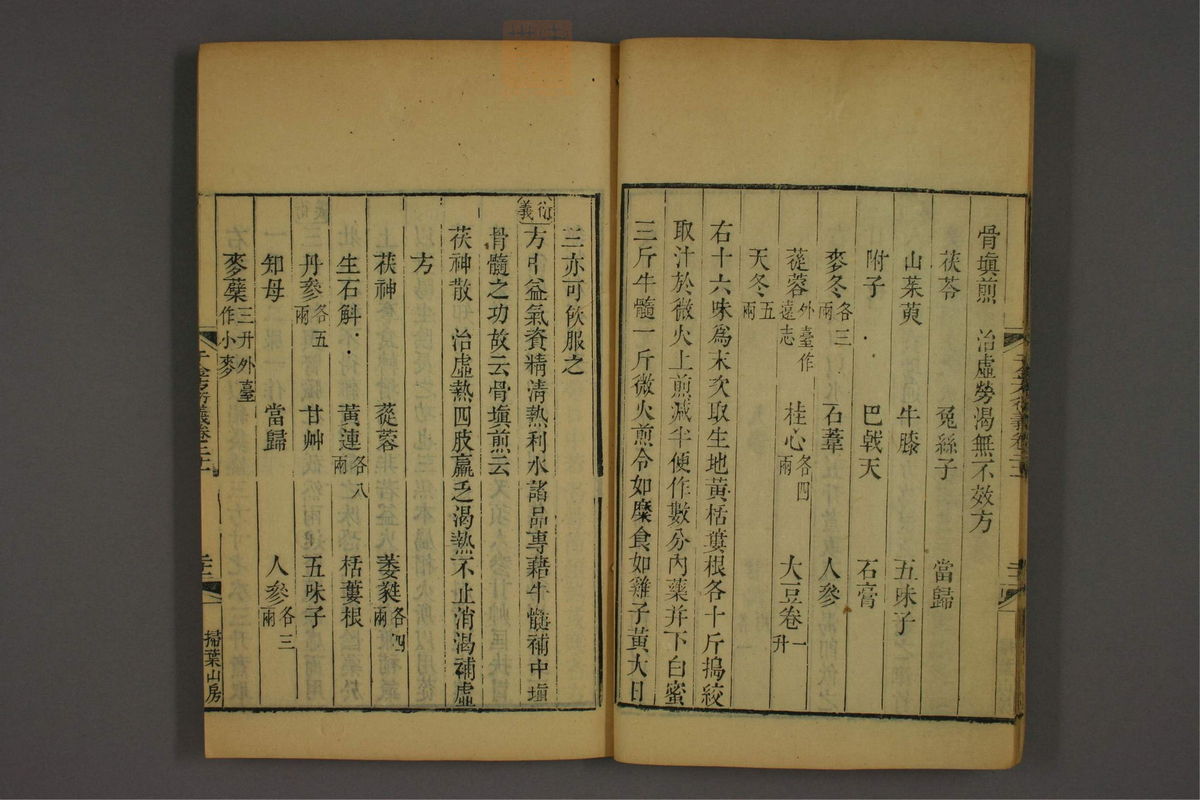 骨塡煎　治虛勞渴無不效方
茯苓　菟絲子　當歸
山茱萸　牛膝　五味子
附子　巴戟天　石膏
麥冬各三兩　石葦　人參
蓯蓉外臺作遠志　桂心各四兩　大豆卷一升
天冬五兩
右十六味爲末次取生地黃栝蔞根各十斤搗絞
取汁於微火上煎減半便作數分內藥并下白蜜
三斤牛髓一斤微火煎令如糜食如雞子黃大日
三亦可飲服之
衍義方中益氣資精淸熱利水諸品專藉牛髓補中塡
骨髓之功故云骨塡煎云
茯神散　治虛熱四肢羸乏渴熱不止消渴補虛
方
茯神　蓯蓉　萎蕤各四兩
生石斛　黃連各八兩　栝蔞根
丹參各五兩　甘艸　五味子
知母　當歸　人參各三兩
麥蘗三升外臺作小麥
千金方衍義卷二十一
掃葉山房